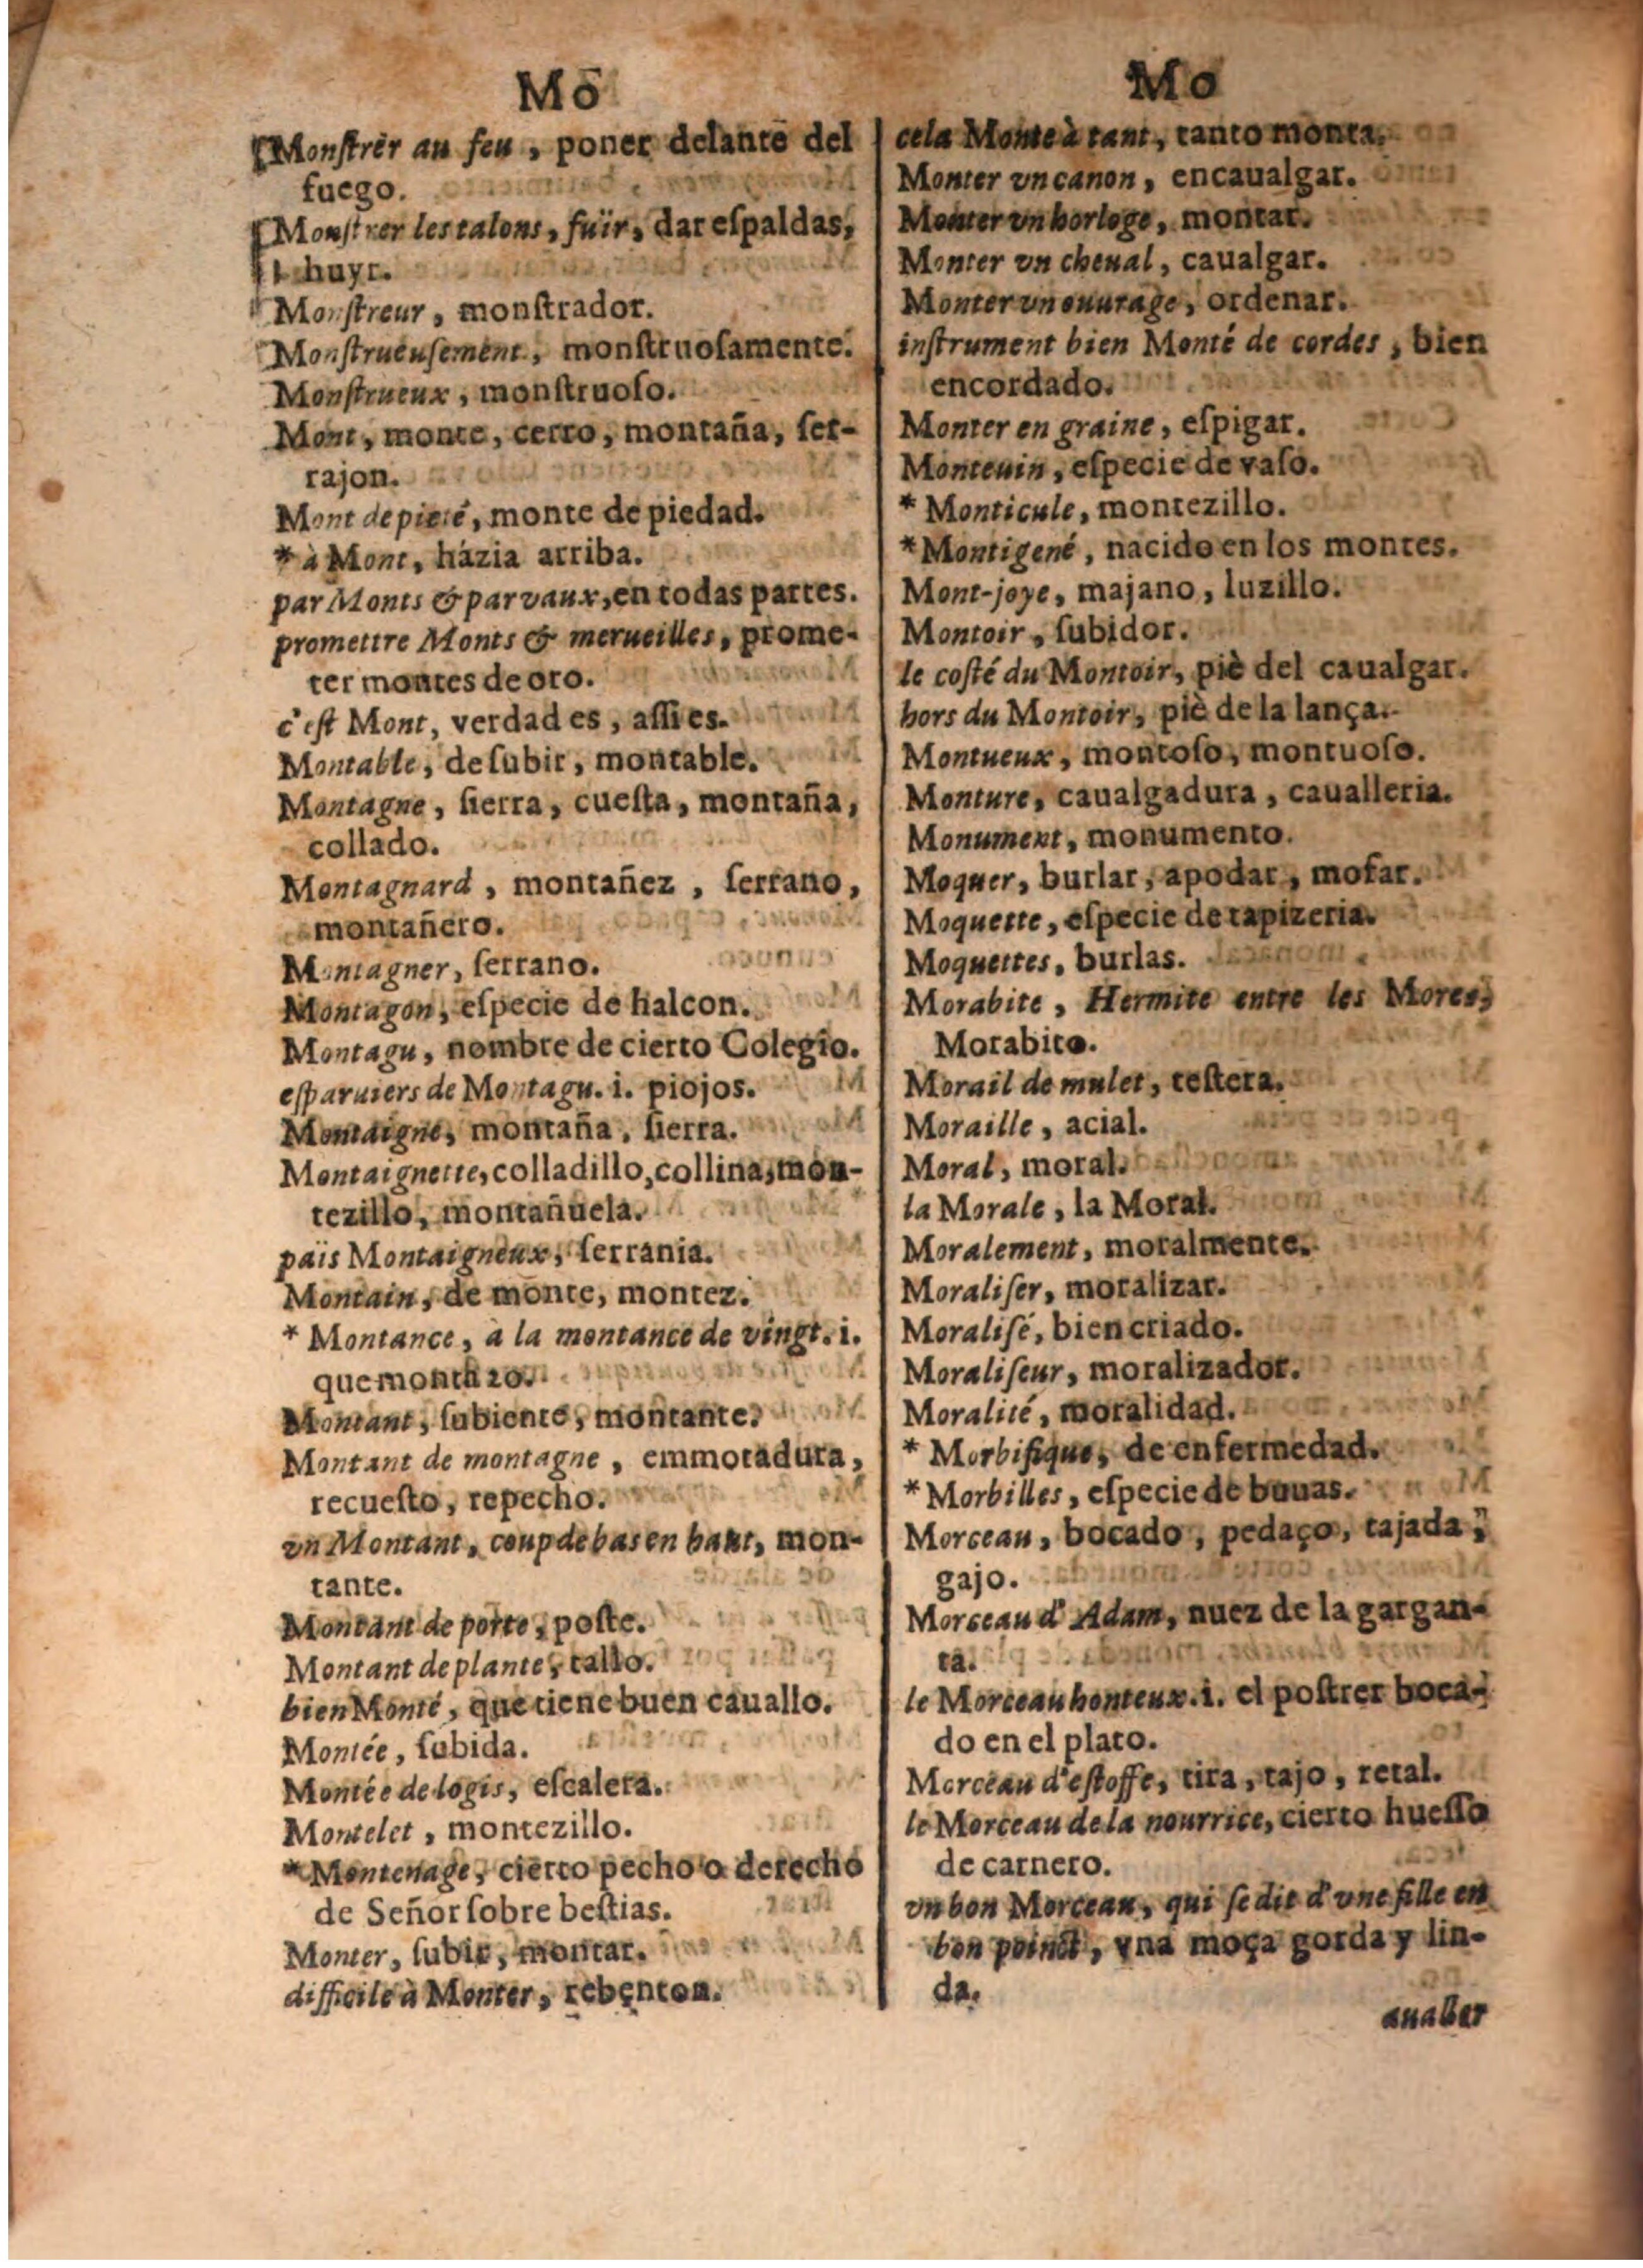 Mo
Monſtrer au feu, poner delante del
fuego.
Monſtrer les talons, fuïr, dar eſpaldas,
huyr.
Monſtreur, monſtrador.
Monſtrueuſement, monſtruoſamente.
Monſtrueux, monſtruoſo.
Mont, monte, cerro, montaña, ſer-
rajon.
Mont de pieté, monte de piedad.
* à Mont, házia arriba.
par Monts & par vaux, en todas partes.
promettre Monts & merueilles, prome-
ter montes de oro.
c'eſt Mont, verdad es, aſſi es.
Montable, de ſubir, montable.
Montagne, ſierra, cueſta, montaña,
collado.
Montagnard, montañez, ſerrano,
montañero.
Montagner, ſerrano.
Montagon, eſpecie de halcon.
Montagu, nombre de cierto Colegio.
eſparuiers de Montagu. i. piojos.
Montaigne, montaña, ſierra.
Montaignette, colladillo, collina, mon-
tezillo, montañuela.
païs Montaigneux, ſerrania.
Montain, de monte, montez.
* Montance, à la montance de vingt. i.
que monta 20.
Montant, ſubiente, montante.
Montant de montagne, emmotadura,
recueſto, repecho.
vn Montant, coup de bas en haut, mon-
tante.
Montant de porte, poſte.
Montant de plante, tallo.
bien Monté, que tiene buen cauallo.
Montée, ſubida.
Montée de logis, eſcalera.
Montelet, montezillo.
* Montenage, cierto pecho o derecho
de Señor ſobre beſtias.
Monter, ſubir, montar.
difficile à Monter, rebenton.
Mo
cela Monte à tant, tanto monta.
Monter vn canon, encaualgar.
Monter vn horloge, montar.
Monter vn cheual, caualgar.
Monter vn ouurage, ordenar.
inſtrument bien Monté de cordes, bien
encordado.
Monter en graine, eſpigar.
Monteuin, eſpecie de vaſo.
* Monticule, montezillo.
* Montigené, nacido en los montes.
Mont-joye, majano, luzillo.
Montoir, ſubidor.
le coſté du Montoir, piè del caualgar.
hors du Montoir, piè de la lança.
Montueux, montoſo, montuoſo.
Monture, caualgadura, caualleria.
Monument, monumento.
Moquer, burlar, apodar, mofar.
Moquette, eſpecie de tapizeria.
Moquettes, burlas.
Morabite, Hermite entre les Mores,
Morabito.
Morail de mulet, teſtera.
Moraille, acial.
Moral, moral.
la Morale, la Moral.
Moralement, moralmente.
Moraliſer, moralizar.
Moraliſé, bien criado.
Moraliſeur, moralizador.
Moralité, moralidad.
* Morbifique, de enfermedad.
* Morbilles, eſpecie de buuas.
Morceau, bocado, pedaço, tajada,
gajo.
Morceau d'Adam, nuez de la gargan-
ta.
le Morceau honteux. i. el poſtrer boca-
do en el plato.
Morceau d'eſtoffe, tira, tajo, retal.
le Morceau de la nourrice, cierto hueſſo
de carnero.
vn bon Morceau, qui ſe dit d'vne fille en
bon poinct, vna moça gorda y lin-
da.
aualler